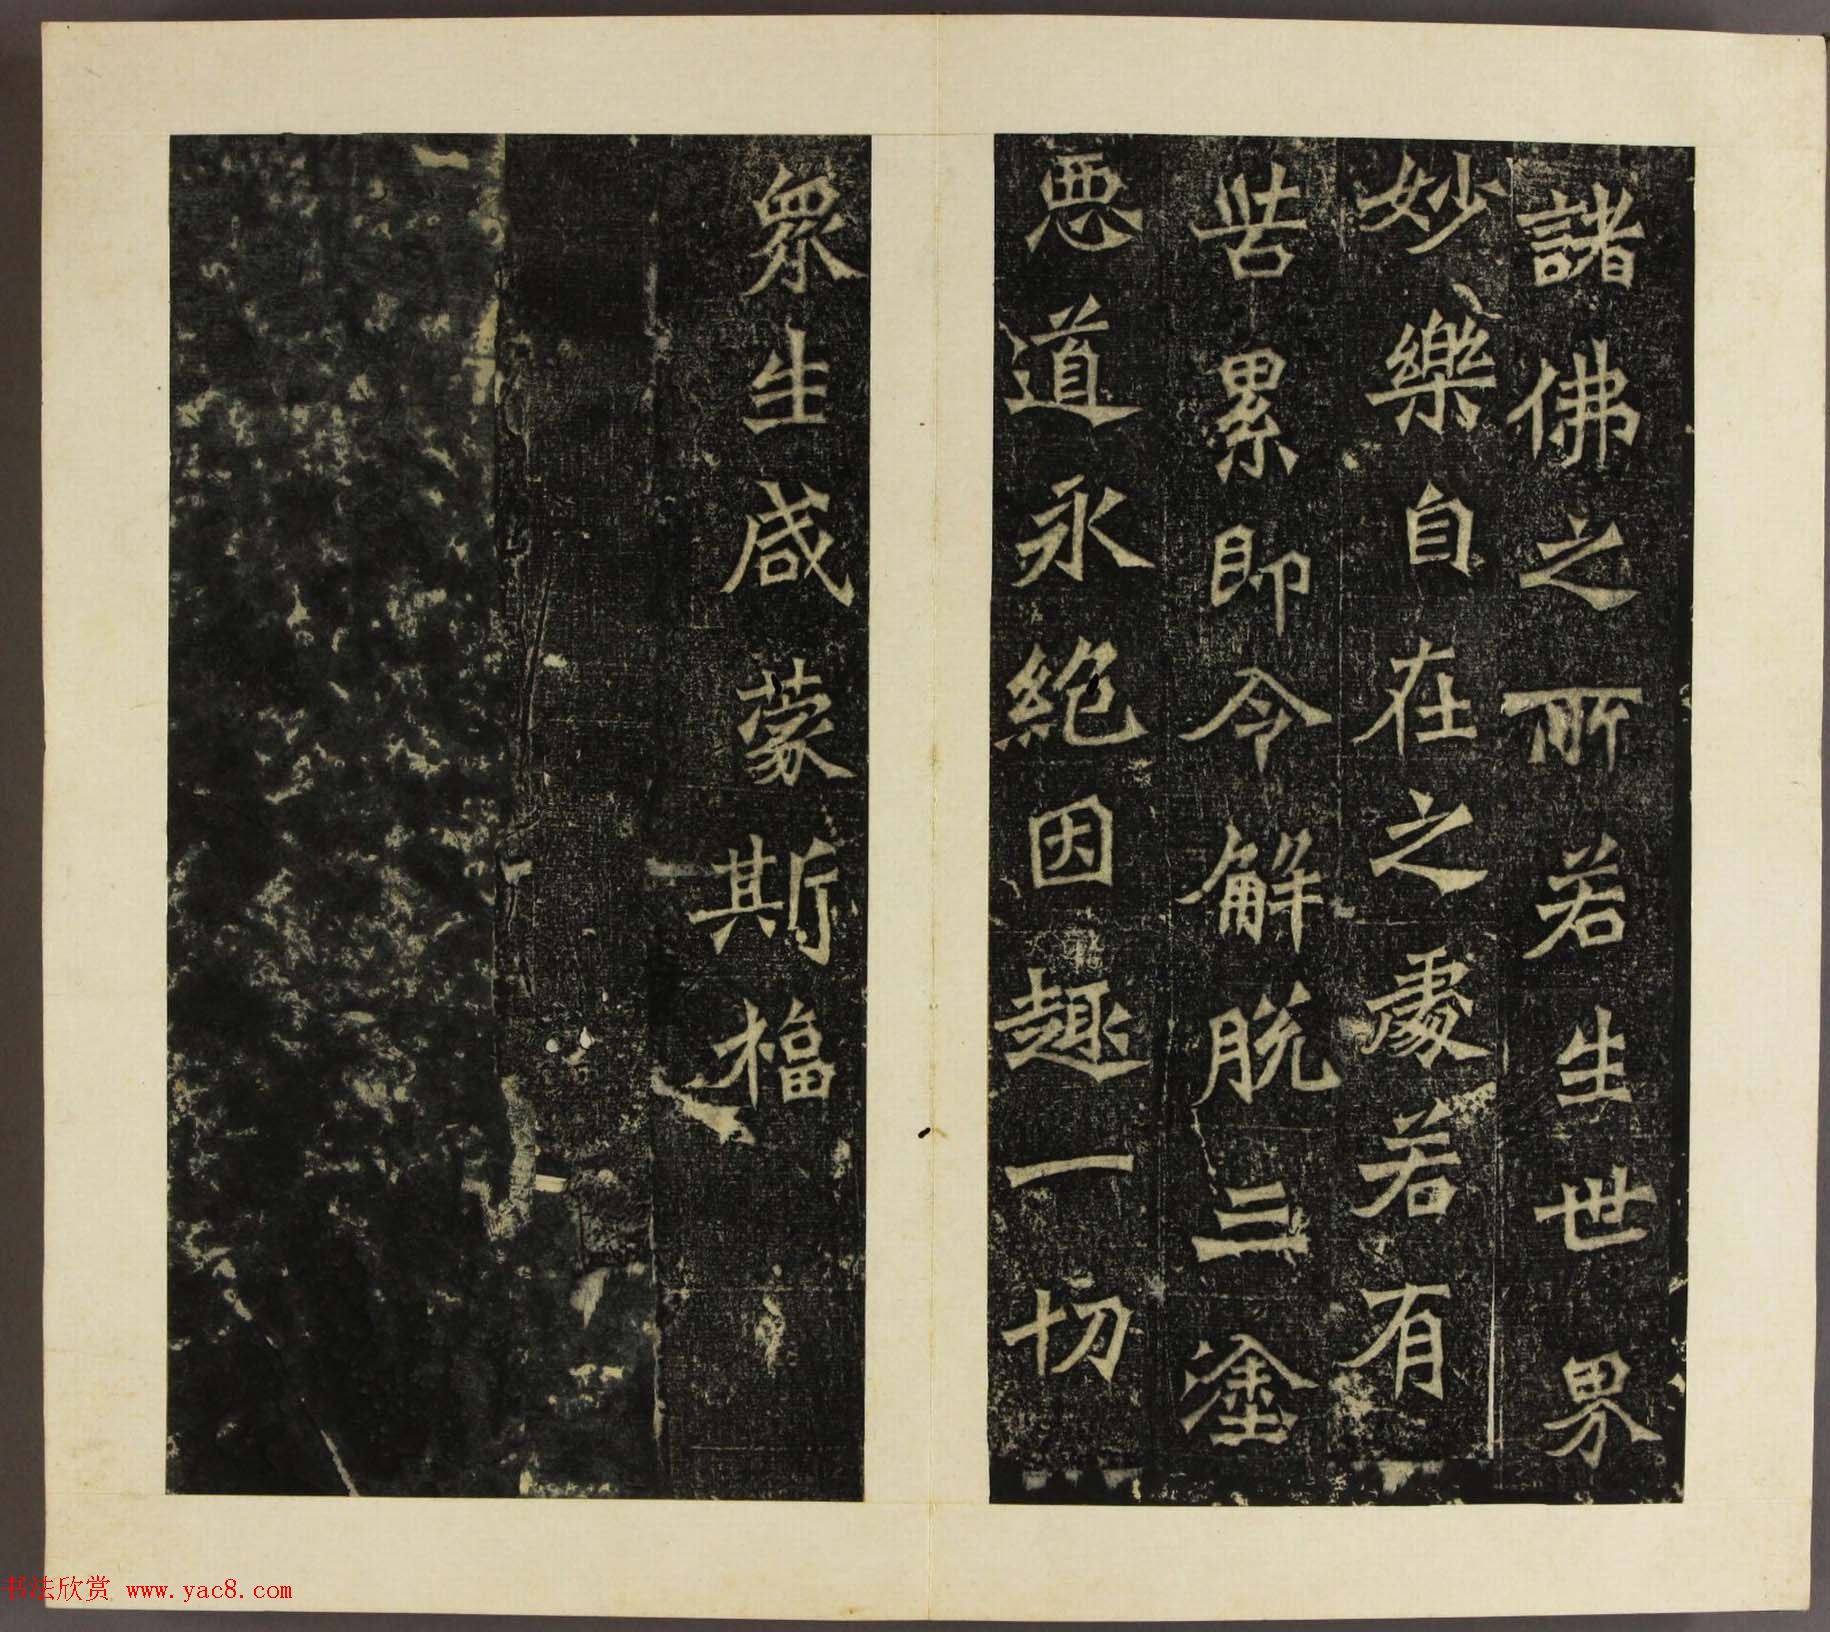 諸佛之所若生世界
妙樂自在之處若有
苦累即令解脫三塗
惡道永絕因趣一切
眾生咸蒙斯福
书法欣赏 www.yac8.com